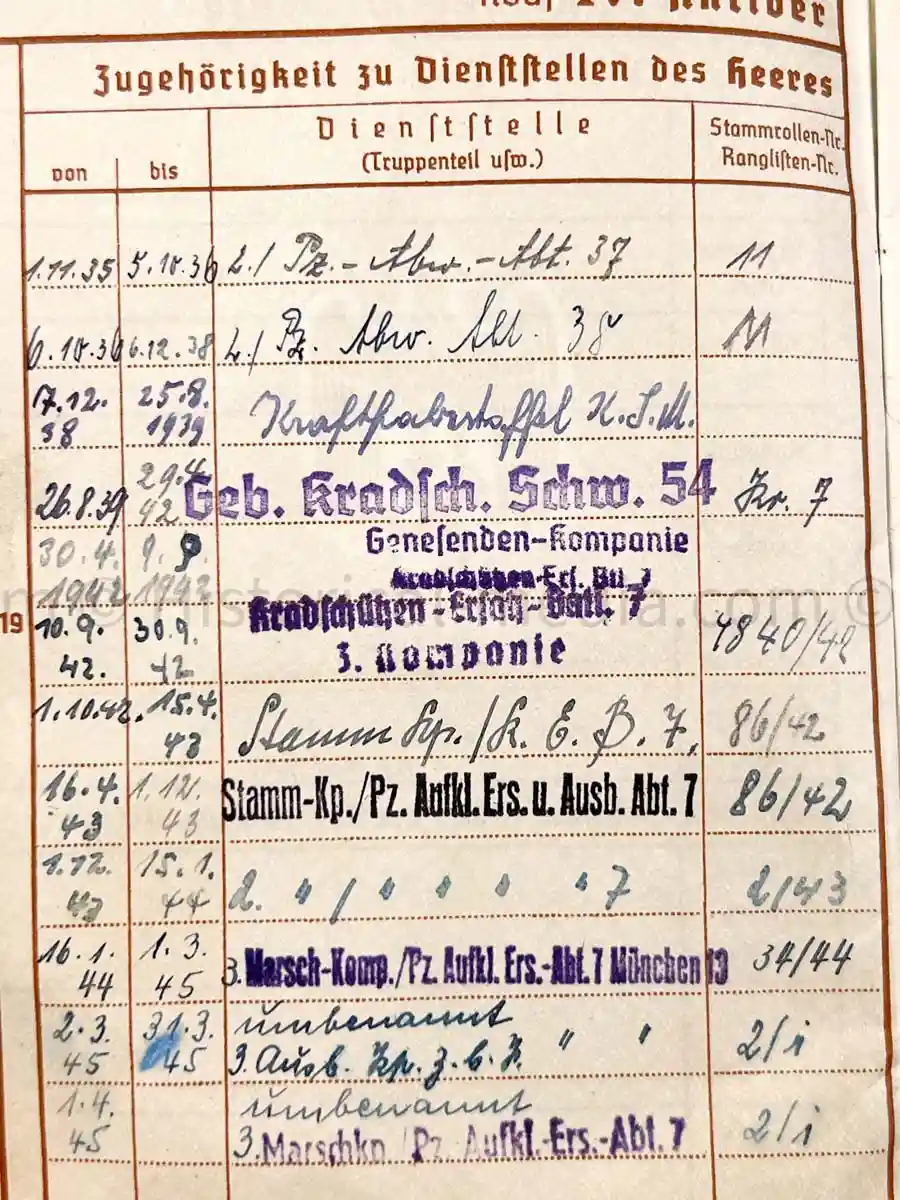 Zugehörigkeit zu Dienststellen des Heeres
von bis Dienststelle (Truppenteil usw.) Stammrollen-Nr. Ranglisten-Nr.
1.11.35 5.10.36 2./ Pz.-Abw.-Abt. 37 11
6.10.36 6.12.38 2./ Pz. Abw. Abt. 38 11
7.12. 38 25.8. 1939 K.S.M.
26.8.39 29.4. 42 Geb. Kradsch. Schw. 54 Kr. 7
30.4. 1942 9.9. 1942 Genesenden-Kompanie
Kradschützen-Ers. Btl. 7
19
Kradschützen-Ersatz-Batl. 7
10.9. 42. 30.9. 42 3. Kompanie 4840/42
1.10.42. 15.4. 43 Stamm Kp./K. E. B. 7, 86/42
16.4. 43 1.12. 43 Stamm-Kp./Pz. Aufkl. Ers. u. Ausb. Abt. 7 86/42
1.12. 43 15.1. 44 2. " / " " " " 7 2/43
16.1. 44 1.3. 45 3. Marsch-Komp./Pz. Aufkl. Ers.-Abt. 7 München 13 34/44
2.3. 45 31.3. 45 umbenannt
3. Ausb. Kp. z. b. V. " " 2/i
1.4. 45 umbenannt
3. Marschkp/Pz. Aufkl.-Ers.-Abt. 7 2/i